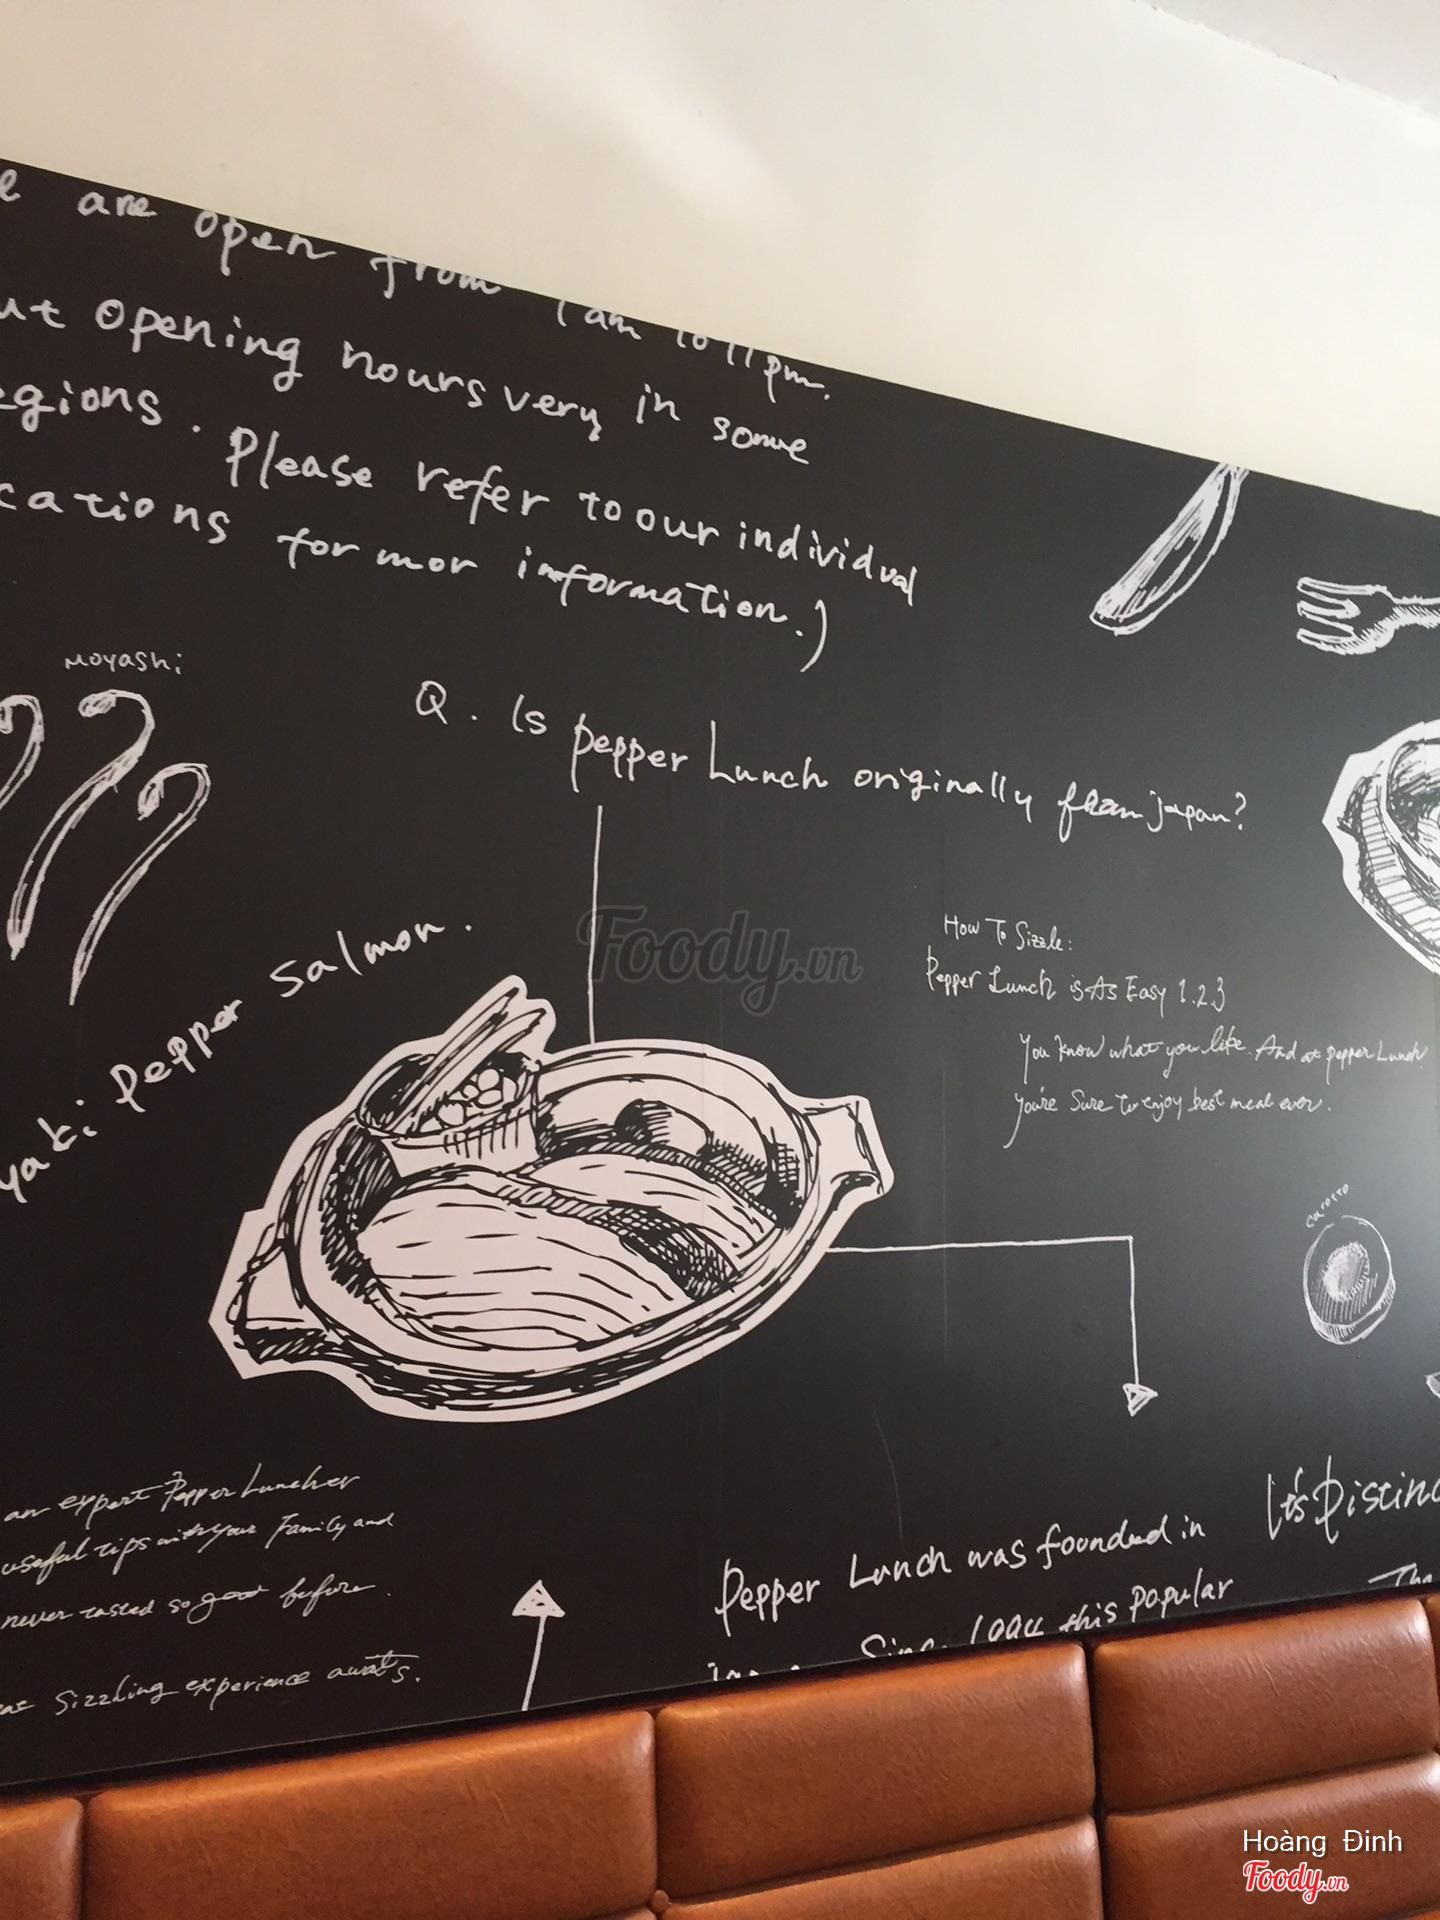 are open from
opening hours very in some
Please refer to our individual
for mor information.)
Moyashi
Q. Is pepper Lunch originally from japan?
yaki pepper salmon.
Foody.vn
How To Sizzle:
Pepper Lunch is As Easy 1.2.3
You know what you like. And at pepper Lunch
you're Sure to enjoy best meal ever.
an expert Pepper Luncher
useful tips with your Family and
never tasted so good before.
Sizzling experience awaits.
Pepper Lunch was founded in
this popular
It's
Hoàng Đinh
Foody.vn